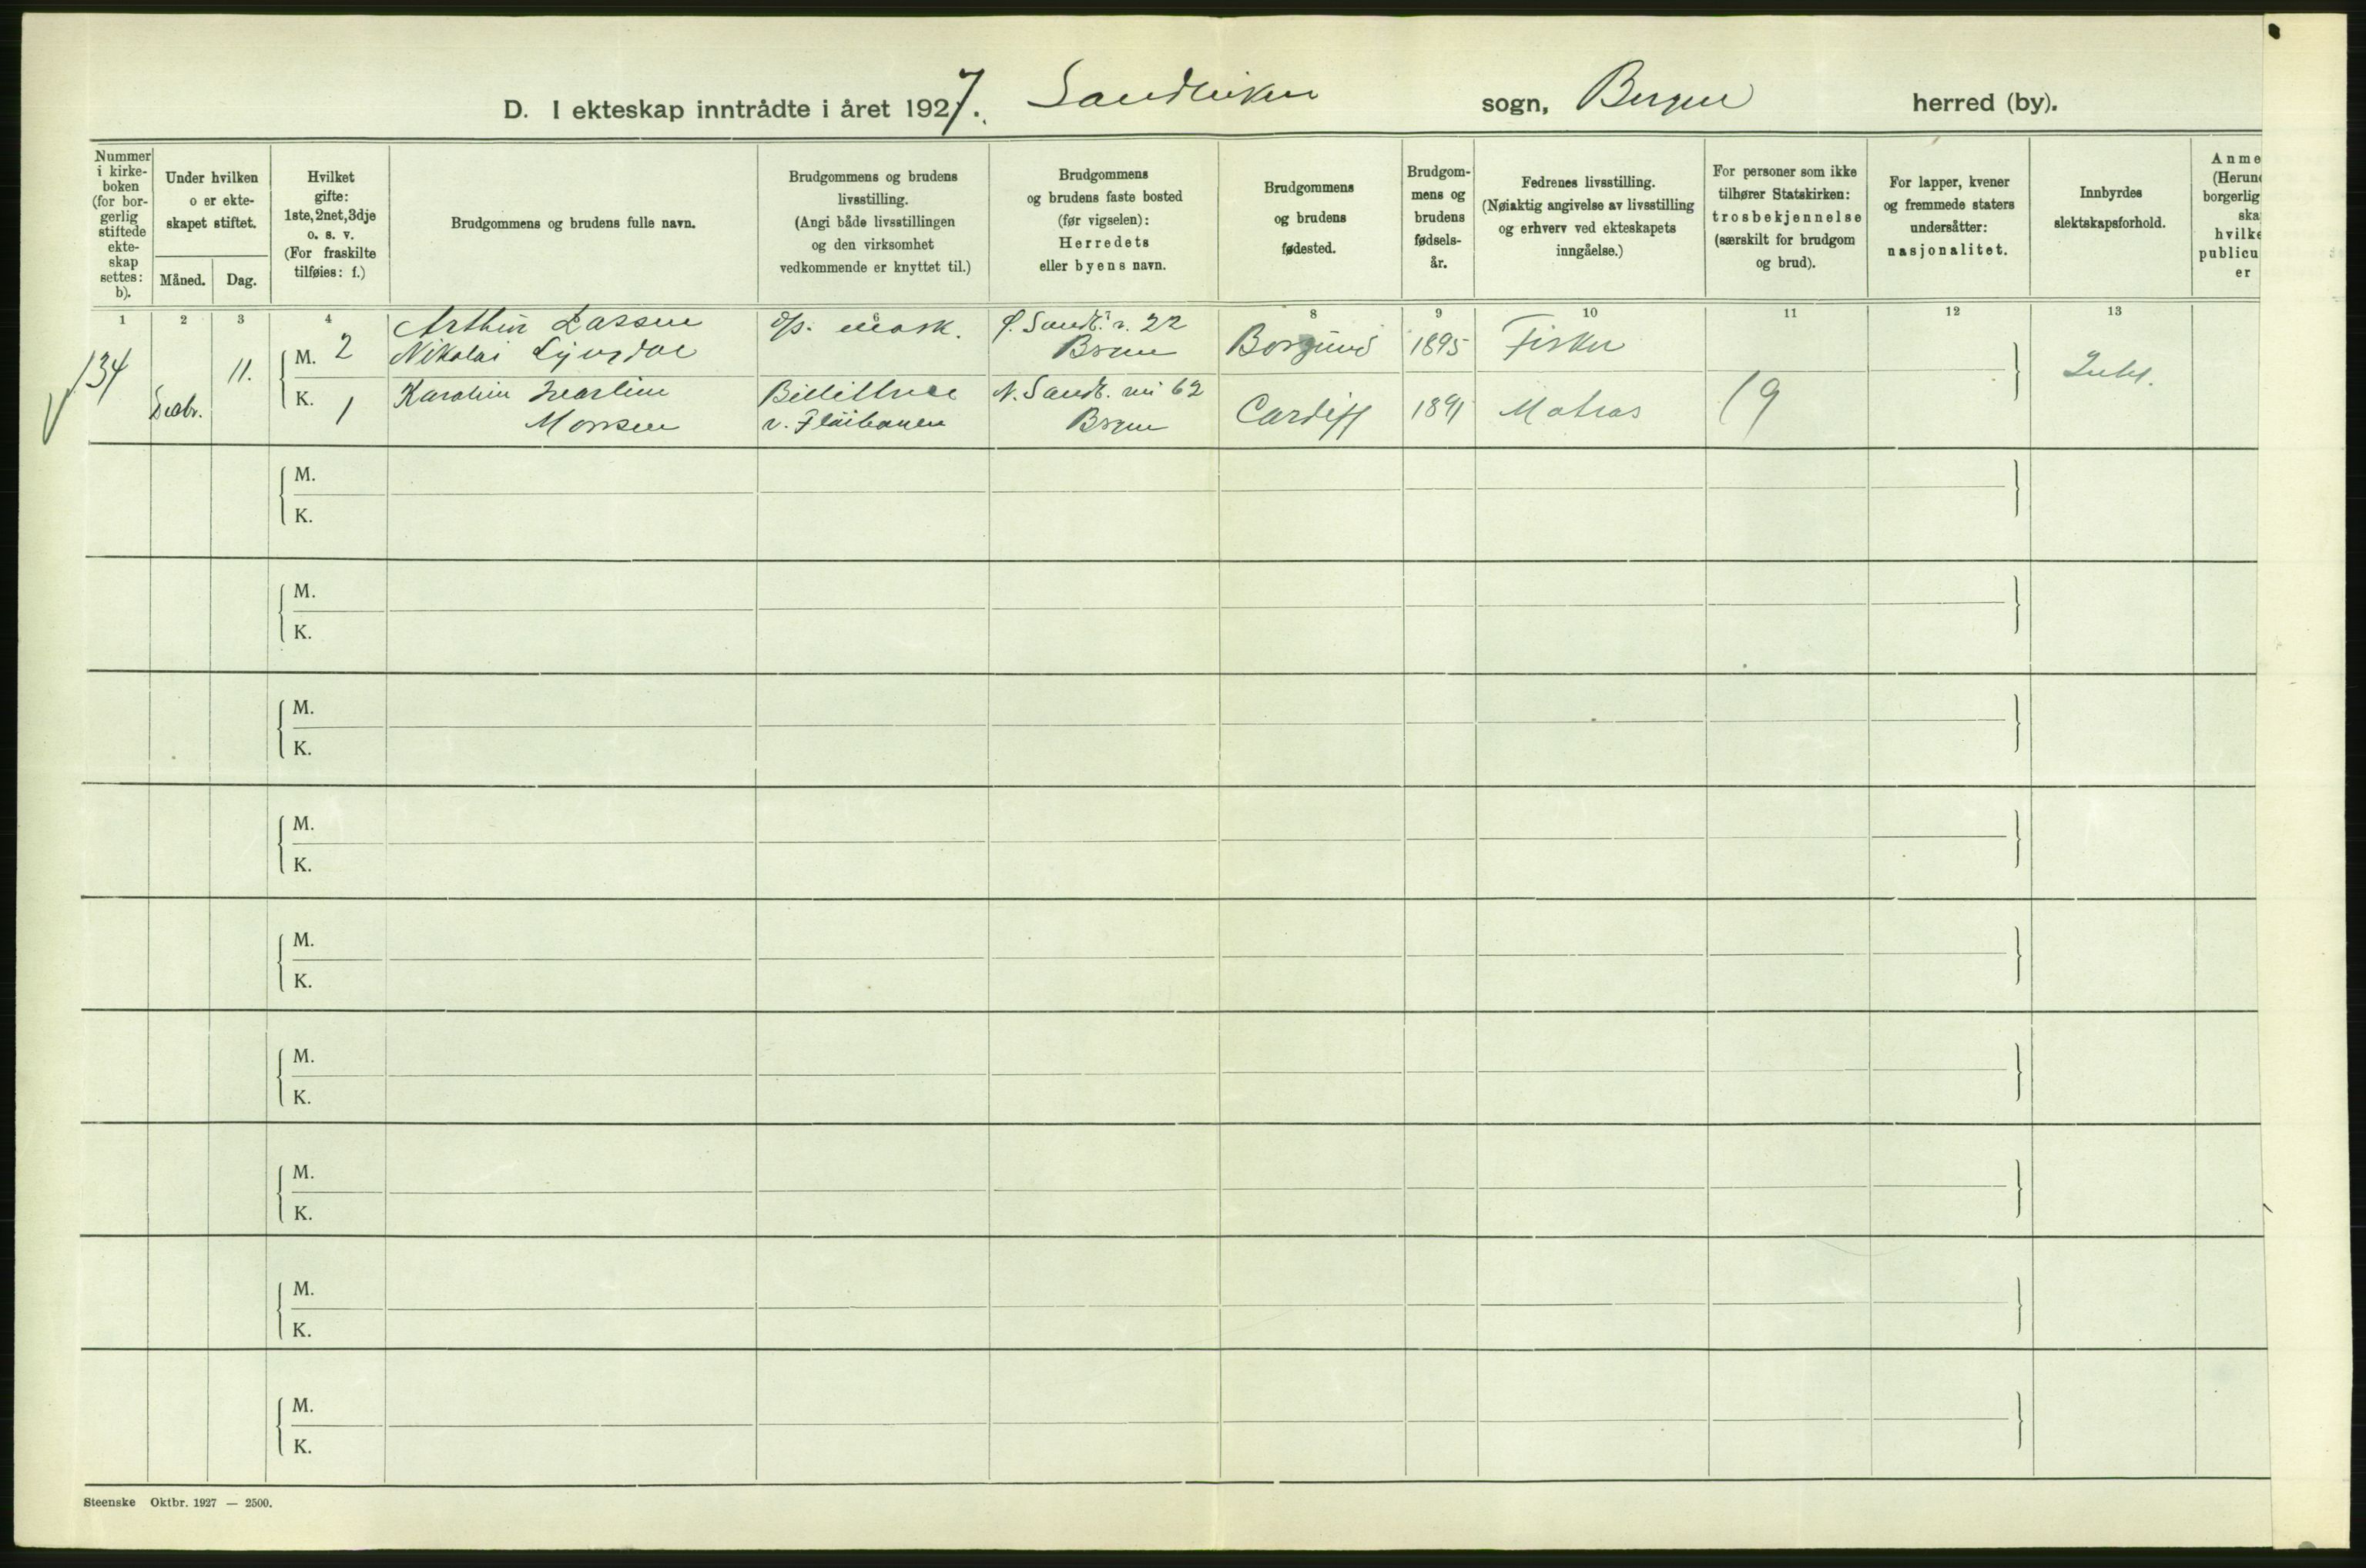 D. I ekteskap inntrådte i året 1927. Sandviken sogn, Bergen herred (by).
Nummer i kirke- boken (for bor- gerlig stiftede ekte- skap settes: b).
Under hvilken o er ekte- skapet stiftet.
Måned.
Dag.
Hvilket gifte: 1ste, 2net, 3dje o. s. v. (For fraskilte tilføies: f.)
Brudgommens og brudens fulle navn.
Brudgommens og brudens livsstilling. (Angi både livsstillingen og den virksomhet vedkommende er knyttet til.)
Brudgommens og brudens faste bosted (før vigselen): Herredets eller byens navn.
Brudgommens og brudens fødested.
Brudgom- mens og brudens fødsels- år.
Fedrenes livsstilling. (Nøiaktig angivelse av livsstilling og erhverv ved ekteskapets inngåelse.)
For personer som ikke tilhører Statskirken: trosbekjennelse (særskilt for brudgom og brud).
For lapper, kvener og fremmede staters undersåtter: nasjonalitet.
Innbyrdes slektskapsforhold.
Anme
(Herun
borgerlig
ska
hvilke
publicu
er
1 2 3 4 8 9 10 11 12 13
134
11.
M. 2
Arthur Lassen
Nikolai
mask.
22
Borgund
1895
Fisker
K. 1
Karoline
Monsen
v. Fløibanen
N. Sandv. 62
Cardiff
1891
Matros
(9
M.
K.
M.
K.
M.
K.
M.
K.
M.
K.
M.
K.
M.
K.
M.
K.
M.
K.
Steenske Oktbr. 1927 — 2500.